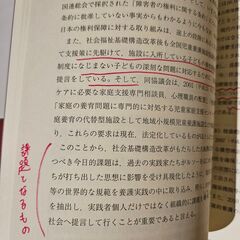 国連総会で採択された「障害者の権利
条約に批准していない事実からもわかるとおり
日本の権利保障に対する
また、社会福祉基礎構造改革後も全国児童養護
て支援策に先駆けて、施設に入所している子ども
制度になじまない子どもの深刻な問題に対応するため
提言をしている。そして、同協議会は、2001
ケアに必要な支援専門的相談員、心理職員の配置
「家庭の養育問題に専門的に対応する児童家庭支援
庭養育の代替型施設として地域小規模児童養護施設
れ、これらの要求は現在、法定化しているものも
このことから、社会福祉基礎構造改革がもたら
つべき今日的課題は、過去の実践家たちがルソー
生み出した思想に影響を受け具現化したように、
等の世界的な規範を養護実践の中に取り組み、
を抽出し、実践者個人だけではなく組織的に
社会へ提言して行くことが重要であると言え
課題となるもの